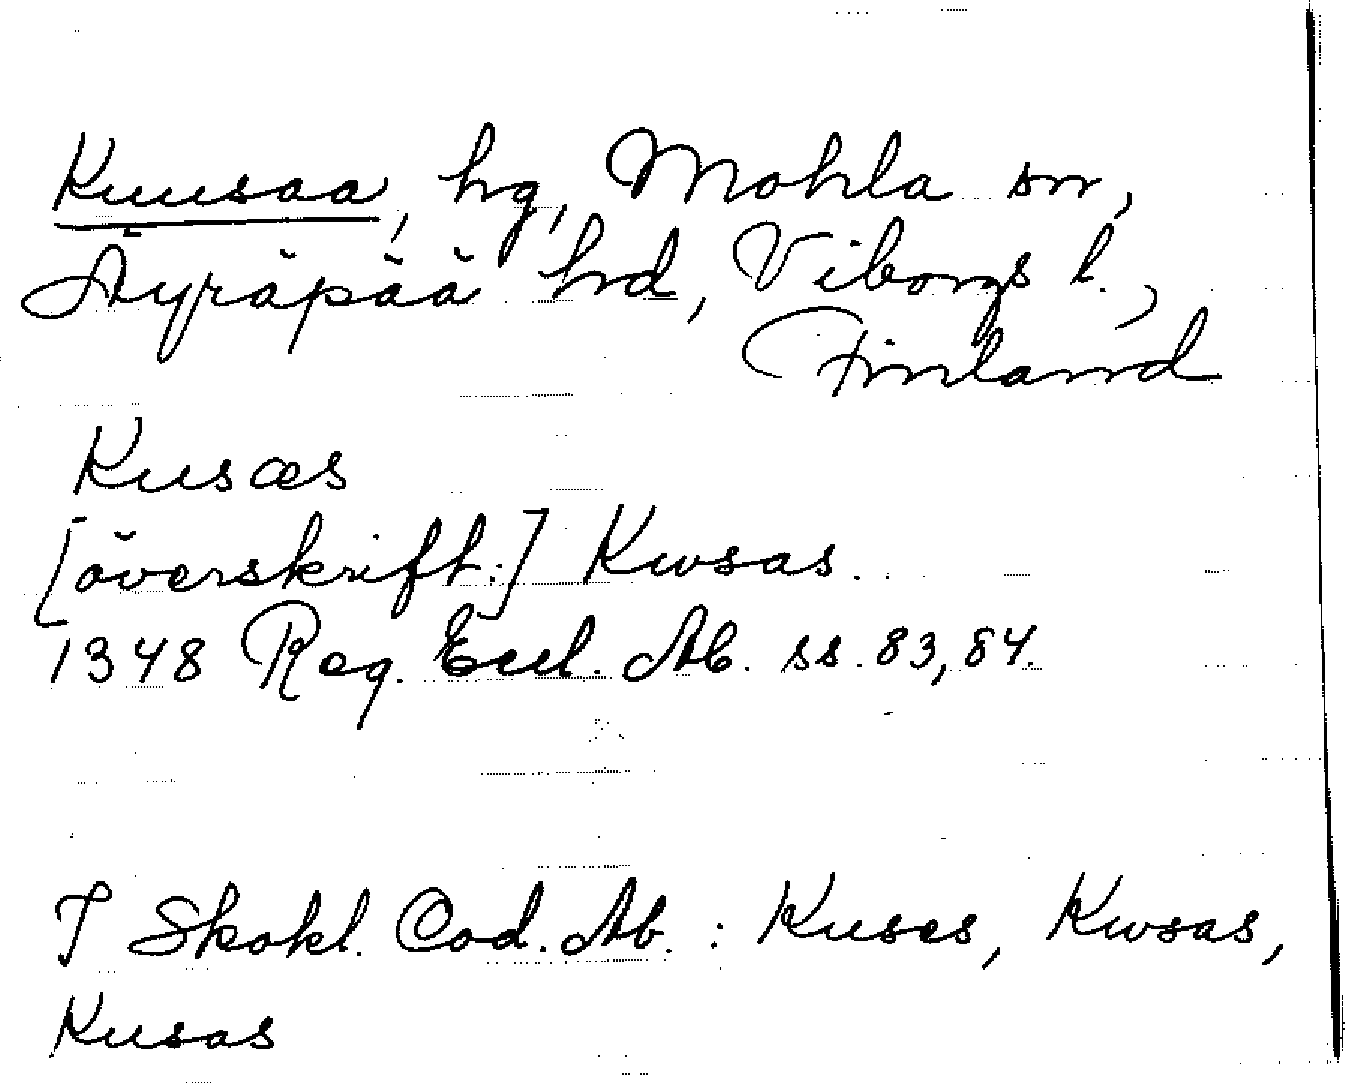 Kuusaa, hg, Mohla sn,
Äyräpää hd, Viborgs l.,
Finland
Kusæs
[överskrift:] Kwsas.
1348 Reg. Eccl. Ab. ss. 83, 84.
I Skokl. Cod. Ab. : Kuses, Kwsas,
Kusas